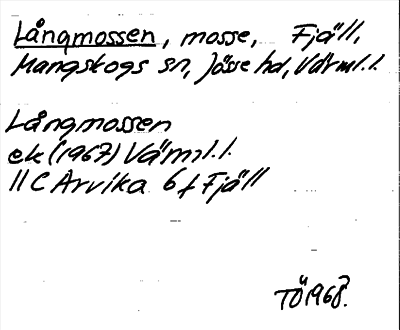 Långmossen, mosse, Fjäll,
Mangskogs sn, Jösse hd, Värml. l.
Långmossen
ek (1967) Värml. l.
11 C Arvika 6 f Fjäll
TÖ 1968.